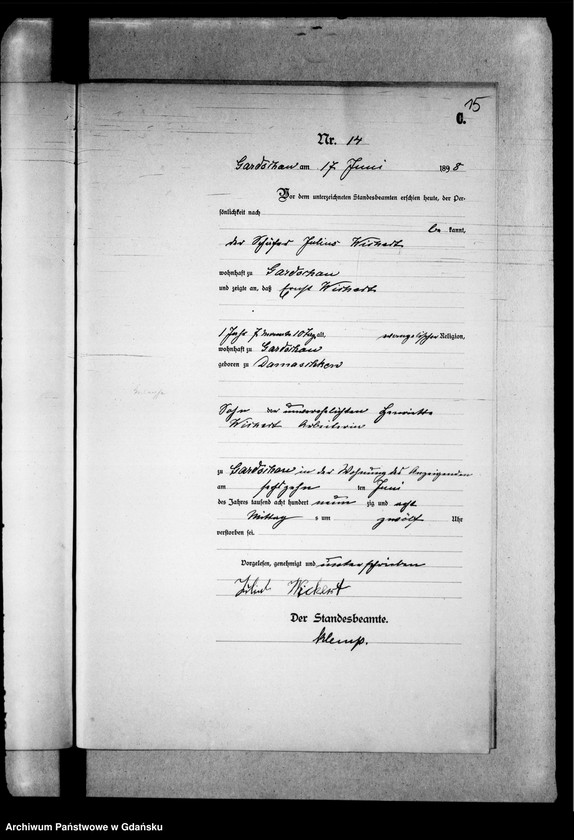 15
C.
Nr. 14
Gardschau am 17. Juni 1898
Vor dem unterzeichneten Standesbeamten erschien heute, der Per-
sönlichkeit nach
be kannt,
der Schäfer Julius Wickert
wohnhaft zu Gardschau
und zeigte an, daß Ernst Wickert
1 Jahr 7 Monate 10 Tage alt, evangelischer Religion,
wohnhaft zu Gardschau
geboren zu Damaschken
Sohn der unverehelichten Henriette
Wickert Arbeiterin
zu Gardschau in der Wohnung des Anzeigenden
am sechszehn ten Juni
des Jahres tausend acht hundert neun zig und acht
Mittag s um zwölf Uhr
verstorben sei.
Vorgelesen, genehmigt und unterschrieben
Julius Wickert
Der Standesbeamte.
Klemp.
Archiwum Państwowe w Gdańsku